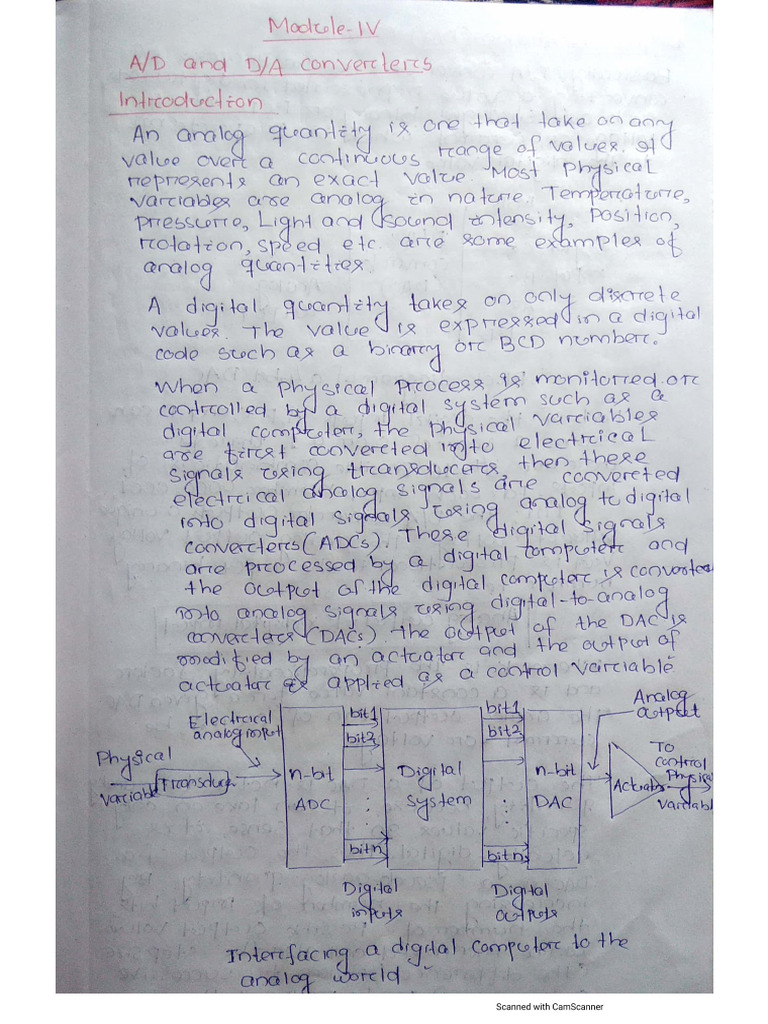 Module-IV
A/D and D/A converters
Introduction
An analog quantity is one that take on any
value over a continuous range of values. It
represents an exact value. Most physical
variables are analog in nature. Temperature,
pressure, Light and sound intensity, position,
rotation, speed etc. are some examples of
analog quantities
A digital quantity takes on only discrete
values. The value is expressed in a digital
code such as a binary or BCD number.
When a physical process is monitored or
controlled by a digital system such as a
digital computer, the physical variables
are first converted into electrical
signals using transducers, then these
electrical analog signals are converted
into digital signals using analog to digital
converters (ADCs). These digital signals
are processed by a digital computer and
the output of the digital computer is converted
into analog signals using digital-to-analog
converters (DACs). The output of the DAC is
modified by an actuator and the output of
actuator is applied as a control variable
Electrical
analog input
Physical
variable
Transduc
n-bit
ADC
bit1
bit2
bitn
Digital
inputs
Digital
system
bit1
bit2
bitn
Digital
outputs
n-bit
DAC
Analog
output
Actuator
To
control
Physical
variable
Interfacing a digital computer to the
analog world
Scanned with CamScanner